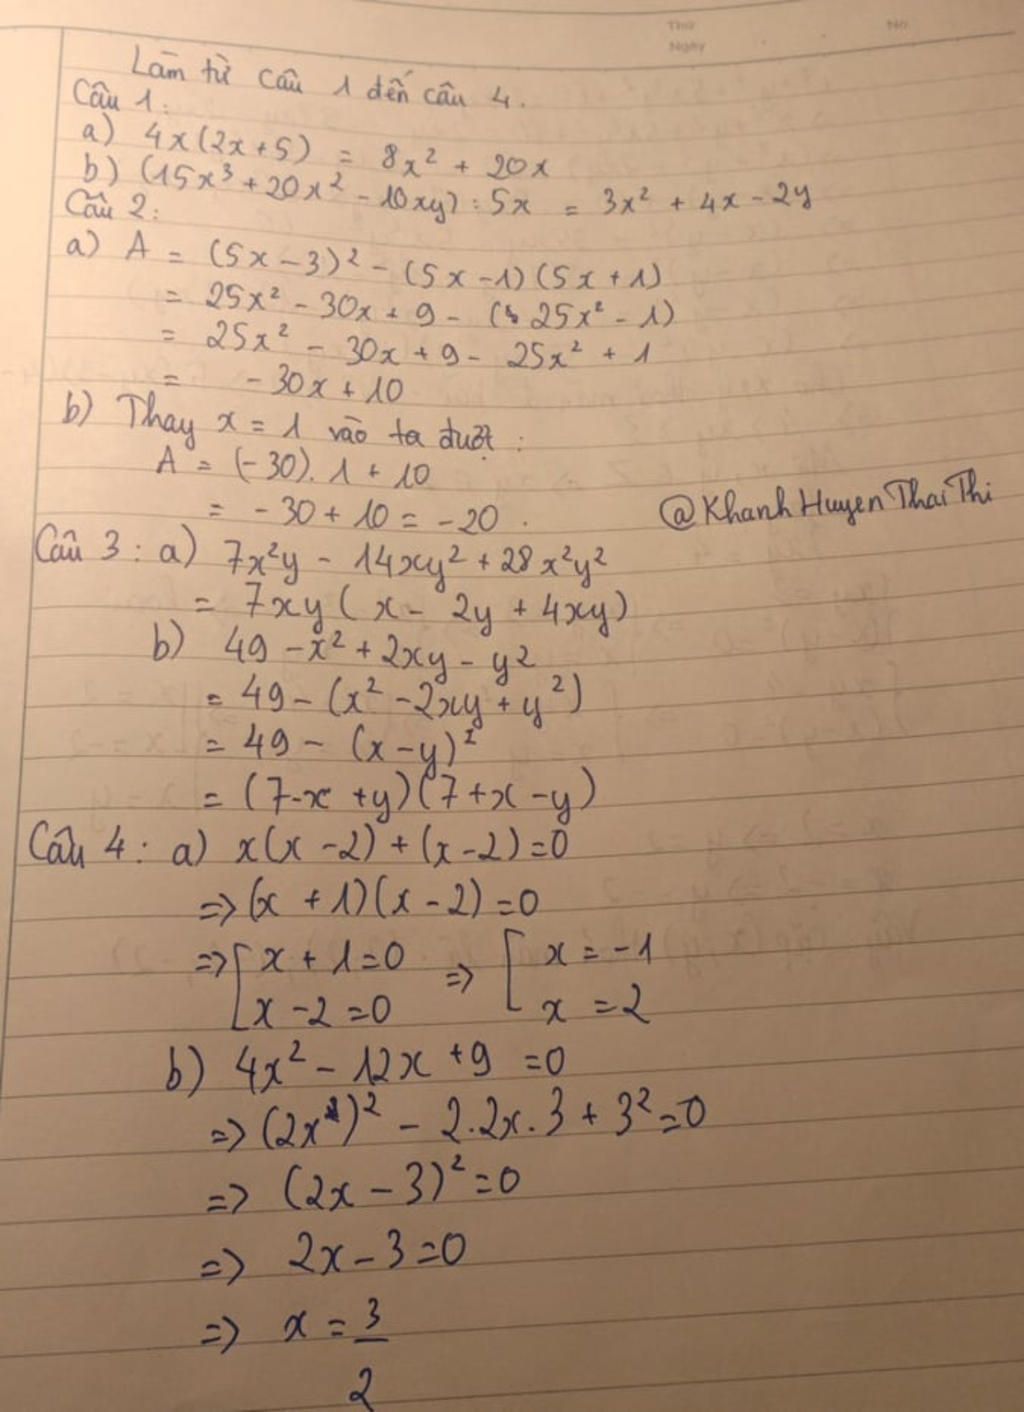 Thứ
No
Ngày
Làm từ câu 1 đến câu 4.
Câu 1:
a) 4x(2x+5) = 8x² + 20x
b) (15x³ + 20x² - 10xy) : 5x = 3x² + 4x - 2y
Câu 2:
a) A = (5x - 3)² - (5x - 1)(5x + 1)
= 25x² - 30x + 9 - (25x² - 1)
= 25x² - 30x + 9 - 25x² + 1
= - 30x + 10
b) Thay x = 1 vào ta được:
A = (-30). 1 + 10
= - 30 + 10 = - 20.
@Khanh Huyen Thai Thi
Câu 3: a) 7x²y - 14xy² + 28x²y²
= 7xy (x - 2y + 4xy)
b) 49 - x² + 2xy - y²
= 49 - (x² - 2xy + y²)
= 49 - (x - y)²
= (7 - x + y)(7 + x - y)
Câu 4: a) x(x - 2) + (x - 2) = 0
=> (x + 1)(x - 2) = 0
=> [ x + 1 = 0 => [ x = -1
x - 2 = 0 x = 2
b) 4x² - 12x + 9 = 0
=> (2x)² - 2.2x.3 + 3² = 0
=> (2x - 3)² = 0
=> 2x - 3 = 0
=> x = 3
2